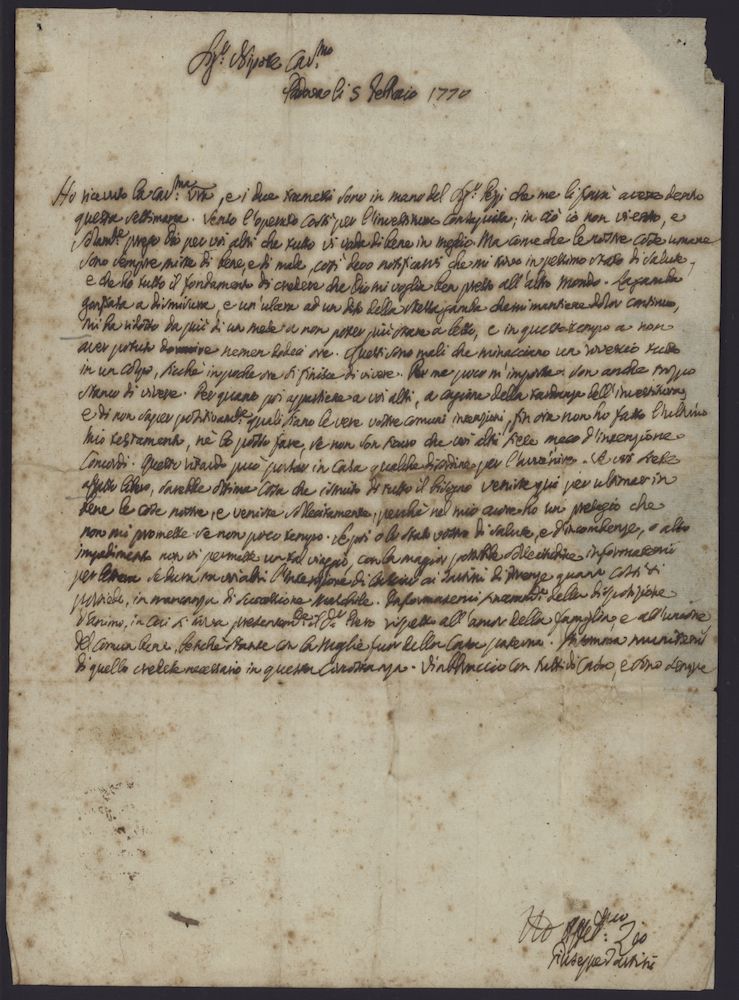 Sig.r Nipote Car.mo
Padova li 5 Febraio 1770
Ho ricevuto la car.ma vra, e i due trametti sono in mano del Sig.r che me li farà avere dentro
questa settimana. Sento l'operato costì per l'investitura conseguita; in ciò io non v'entro, e
solam.te prego Dio per voi altri che tutto vi vada di bene in meglio. Ma come che le nostre cose umane
sono sempre miste di bene, e di male, così devo notificarvi che mi trovo in pessimo stato di salute,
e che ho tutto il fondamento di credere che Dio mi voglia ben presto all'altro mondo. La gamba
gonfiata a dismisura, e un'ulcera ad un dito della stessa gamba che mi mantiene dolor continuo,
mi ha ridotto da più di un mese a non poter più stare a letto, e in questo tempo a non
aver potuto dormire nemen dodeci ore. Questi sono mali che minacciano un rovescio tutto
in un colpo, sicché in poche ore si finisce di vivere. Per me poco m'importa: son anche troppo
stanco di vivere. Per quanto poi appartiene a voi altri, a cagione della tardanza dell'investitura,
e di non saper positivam.te quali siano le vere vostre comuni intenzioni, fin ora non ho fatto l'ultimo
mio testamento, né lo posso fare, se non son sicuro che voi altri siete meco d'intenzione
concordi. Questo ritardo può portar in casa qualche disordine per l'avvenire. Se voi siete
affatto libero, sarebbe ottima cosa che istruito di tutto il bisogno veniste qui per ultimar in
bene le cose nostre, e veniste sollecitamente, perché nel mio cuore ho un presagio che
non mi promette se non poco tempo. Se poi o lo stato vostro di salute, e d'incombenze, o altro
impedimento non vi permette un tal viaggio, con la maggior possibile sollecitudine informatemi
per lettera se dura tra voi altri l'intenzione di ai di quanto costì si
possiede, in mancanza di successione maschile. Informatemi sinceram.te della disposizione
d'animo, in cui si trova presentem.te il Pietro rispetto all'amor della famiglia, e all'unione
del comun bene, benché stante con la moglie fuor della casa paterna. In somma munitemi
di quello credete necessario in questa circostanza. V'abbraccio con tutti di casa, e sono sempre
Vro Affett.mo Zio
Giuseppe Tartini